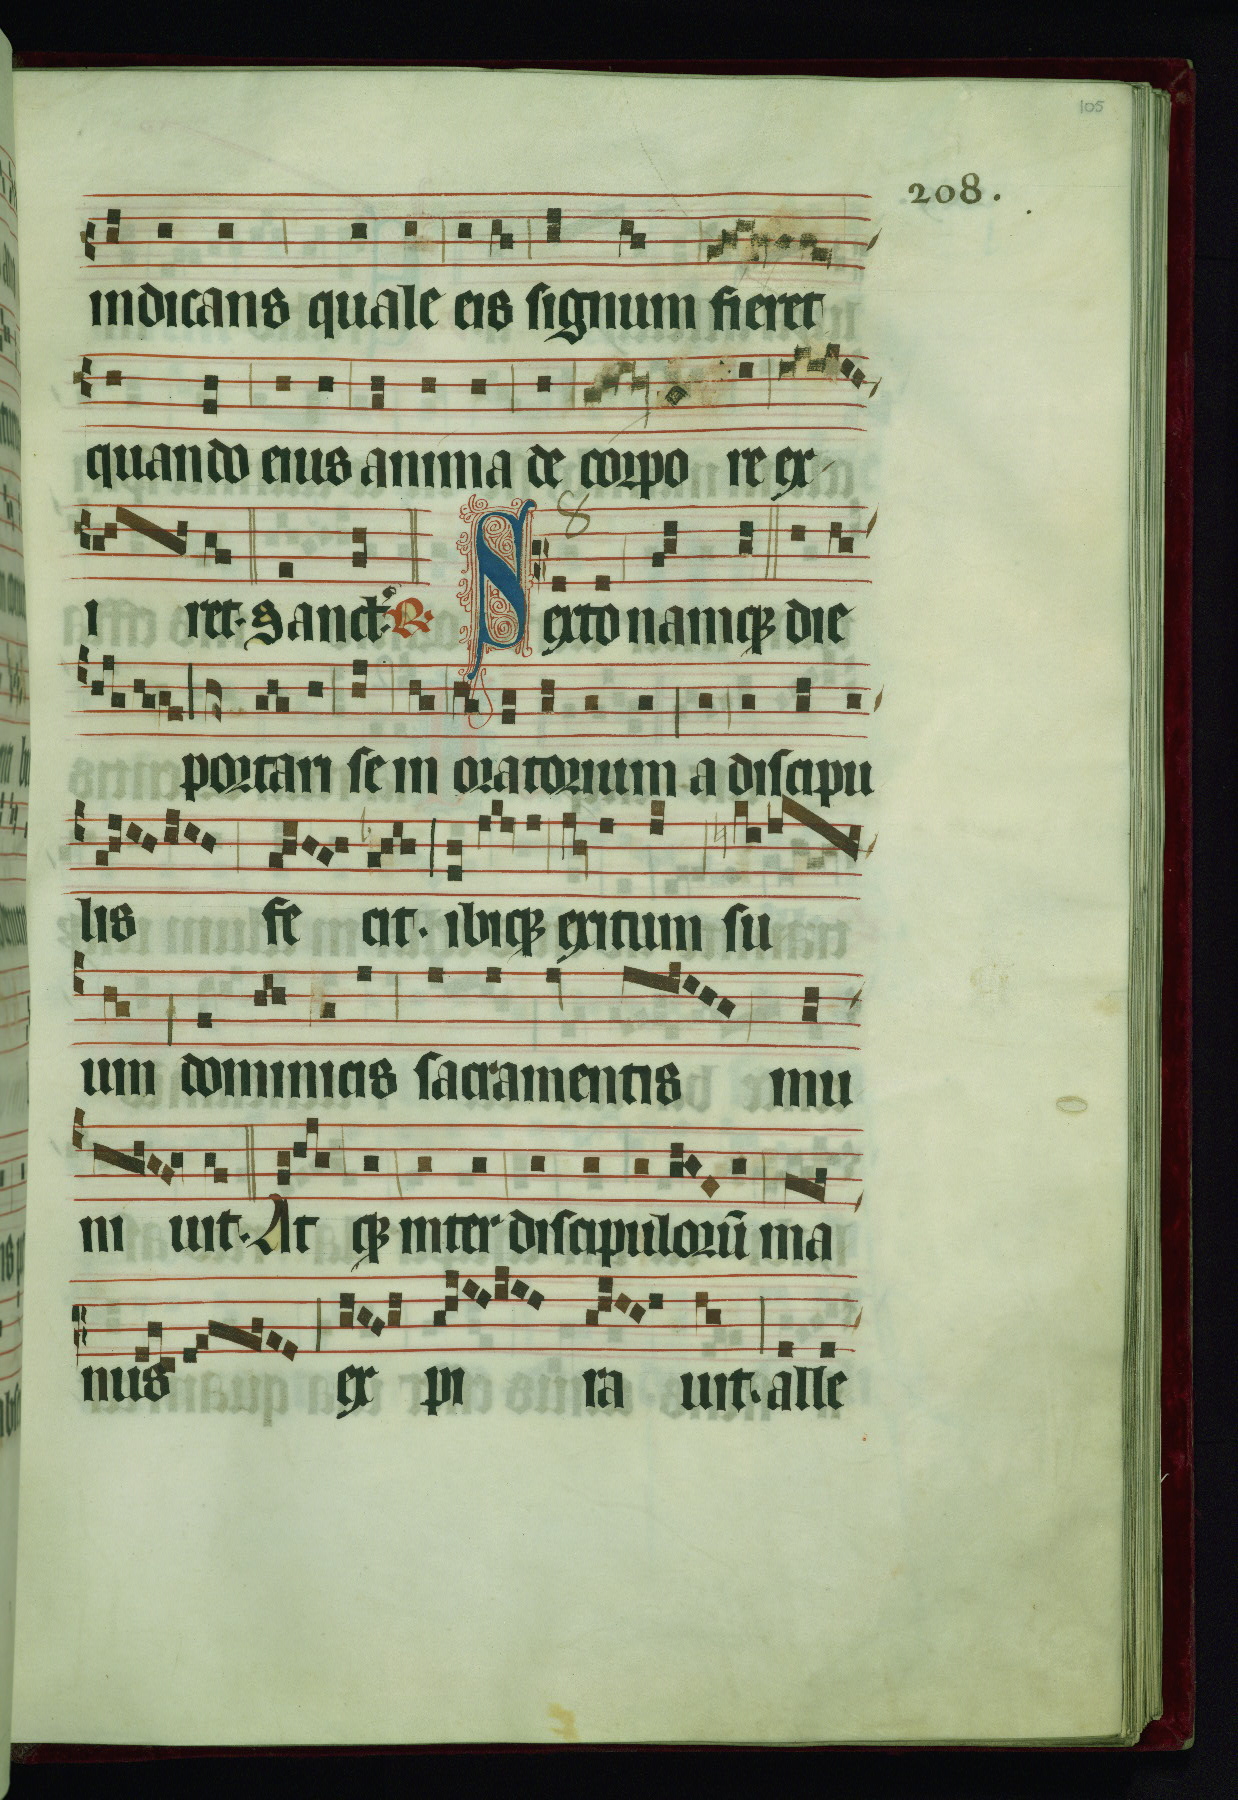 105
208.
indicans quale eis signum fieret
quando eius anima de corpo re ex-
8
i ret. Sanct9 R. Sexto namqꝫ die
portari se in oratorium a discipu
lis fe cit. ibiqꝫ exitum su
um dominicis sacramentis mu
ni uit. At qꝫ inter discipulorū ma
nus ex pi ra uit. alle